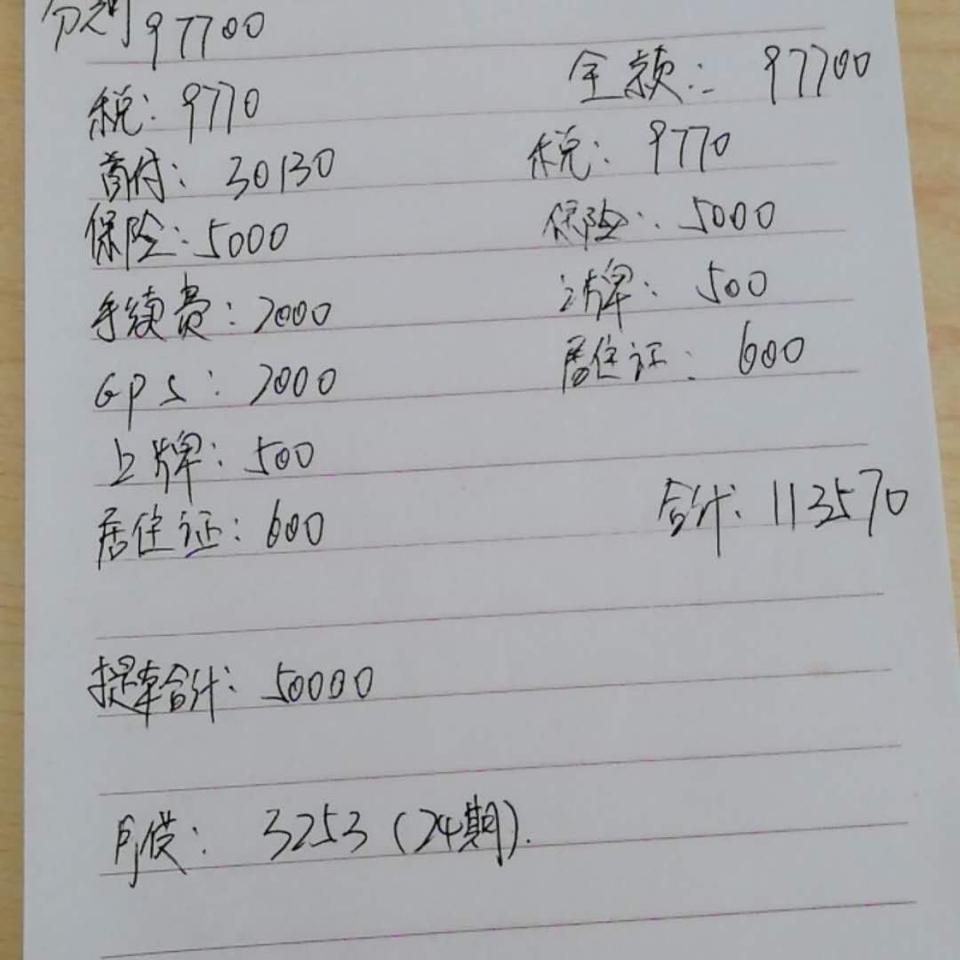 分期 97700
税: 9770
首付: 30130
保险: 5000
手续费: 2000
GPS: 2000
上牌: 500
居住证: 600
提车合计: 50000
月供: 3253 (24期).
全款: 97700
税: 9770
保险: 5000
上牌: 500
居住证: 600
合计: 113570